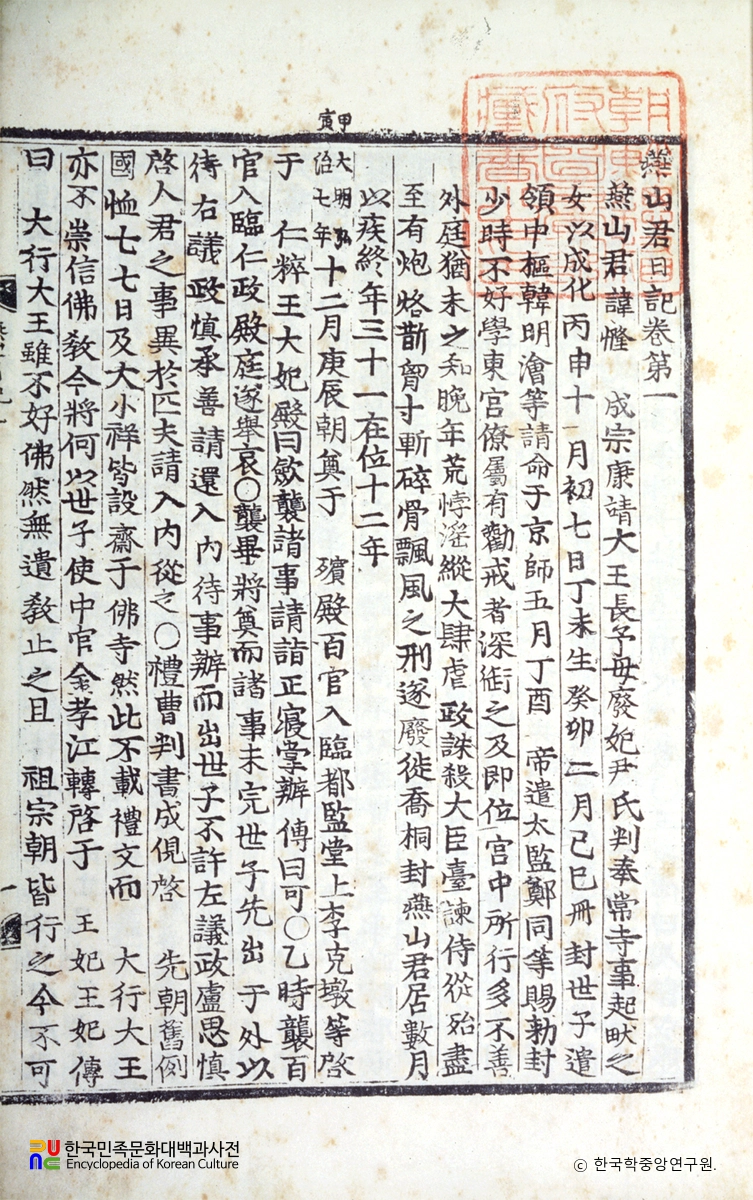 甲寅
燕山君日記卷第一
燕山君諱㦕 成宗康靖大王長子母廢妃尹氏判奉常寺事起畎之
女以成化丙申十一月初七日丁未生癸卯二月己巳冊封世子遣
領中樞韓明澮等請命于京師五月丁酉 帝遣太監鄭同等賜勅封
少時不好學東宮僚屬有勸戒者深銜之及即位宮中所行多不善
外庭猶未之知晚年荒悖淫縱大肆虐政誅殺大臣臺諫侍從殆盡
至有炮烙斮胷寸斬碎骨飄風之刑遂廢徙喬桐封燕山君居數月
以疾終年三十一在位十二年
大明弘治七年十二月庚辰朝奠于 殯殿百官入臨都監堂上李克墩等啓
于 仁粹王大妃殿曰斂襲諸事請詣正寢掌辦傳曰可○乙時襲百
官入臨仁政殿庭遂舉哀○襲畢將奠而諸事未完世子先出 于外以
待右議政愼承善請還入內待事辦而出世子不許左議政盧思愼
啓人君之事異於匹夫請入內從之○禮曹判書成俔啓 先朝舊例
國恤七七日及大小祥皆設齋于佛寺然此不載禮文而 大行大王
亦不崇信佛教今將何以世子使中官金孝江轉啓于 王妃王妃傳
曰 大行大王雖不好佛然無遺教止之且 祖宗朝皆行之今不可
한국민족문화대백과사전
Encyclopedia of Korean Culture
ⓒ 한국학중앙연구원.